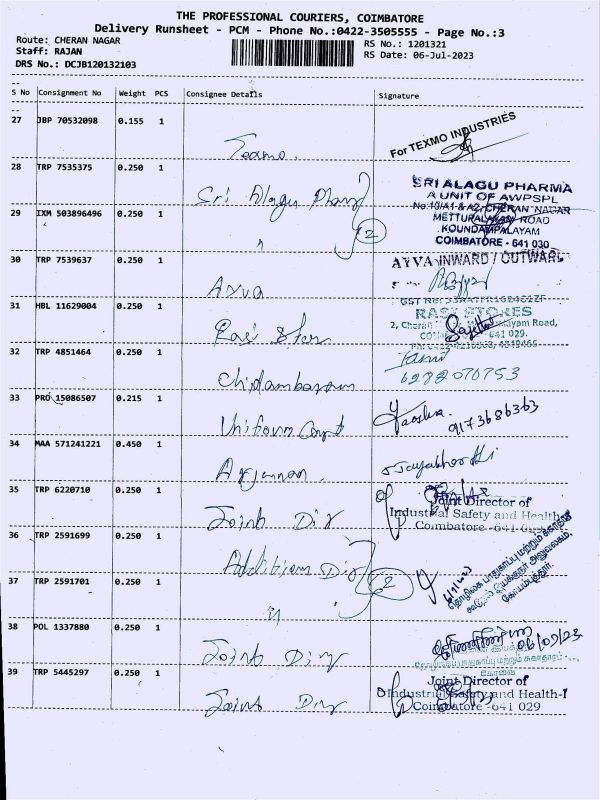 THE PROFESSIONAL COURIERS, COIMBATORE
Delivery Runsheet - PCM - Phone No.:0422-3505555 - Page No.:3
Route: CHERAN NAGAR
RS No.: 1201321
Staff: RAJAN
RS Date: 06-Jul-2023
DRS No.: DCJB120132103
S No Consignment No Weight PCS Consignee Details Signature
27 JBP 70532098 0.155 1
Texmo.
For TEXMO INDUSTRIES
28 TRP 7535375 0.250 1
Sri Alagu Pharma
SRI ALAGU PHARMA
A UNIT OF AWPSPL
No:10/A1 & A2, CHERAN NAGAR
METTUPALAYAM ROAD
KOUNDAMPALAYAM
COIMBATORE - 641 030
29 IXM 503896496 0.250 1
" 2
30 TRP 7539637 0.250 1
Ayva
AYVA INWARD / OUTWARD
31 HBL 11629004 0.250 1
Rasi Store
RASI STORES
641 029.
32 TRP 4851464 0.250 1
Chidambaram
6282070753
33 PRO 15086507 0.215 1
Uniform
9173686363
34 MAA 571241221 0.450 1
35 TRP 6220710 0.250 1
Joint Dir
Joint Director of
Industrial Safety and Health-
Coimbatore -641 029
36 TRP 2591699 0.250 1
Addition Dir
37 TRP 2591701 0.250 1
" 2
தொழிலக பாதுகாப்பு மற்றும் சுகாதார
கூடுதல் இயக்குநர் அலுவலகம்,
கோயம்புத்தூர்.
38 POL 1337880 0.250 1
Joint Dir
06/07/23
கோவை
39 TRP 5445297 0.250 1
Joint Dir
Joint Director of
Industrial Safety and Health-I
Coimbatore -641 029